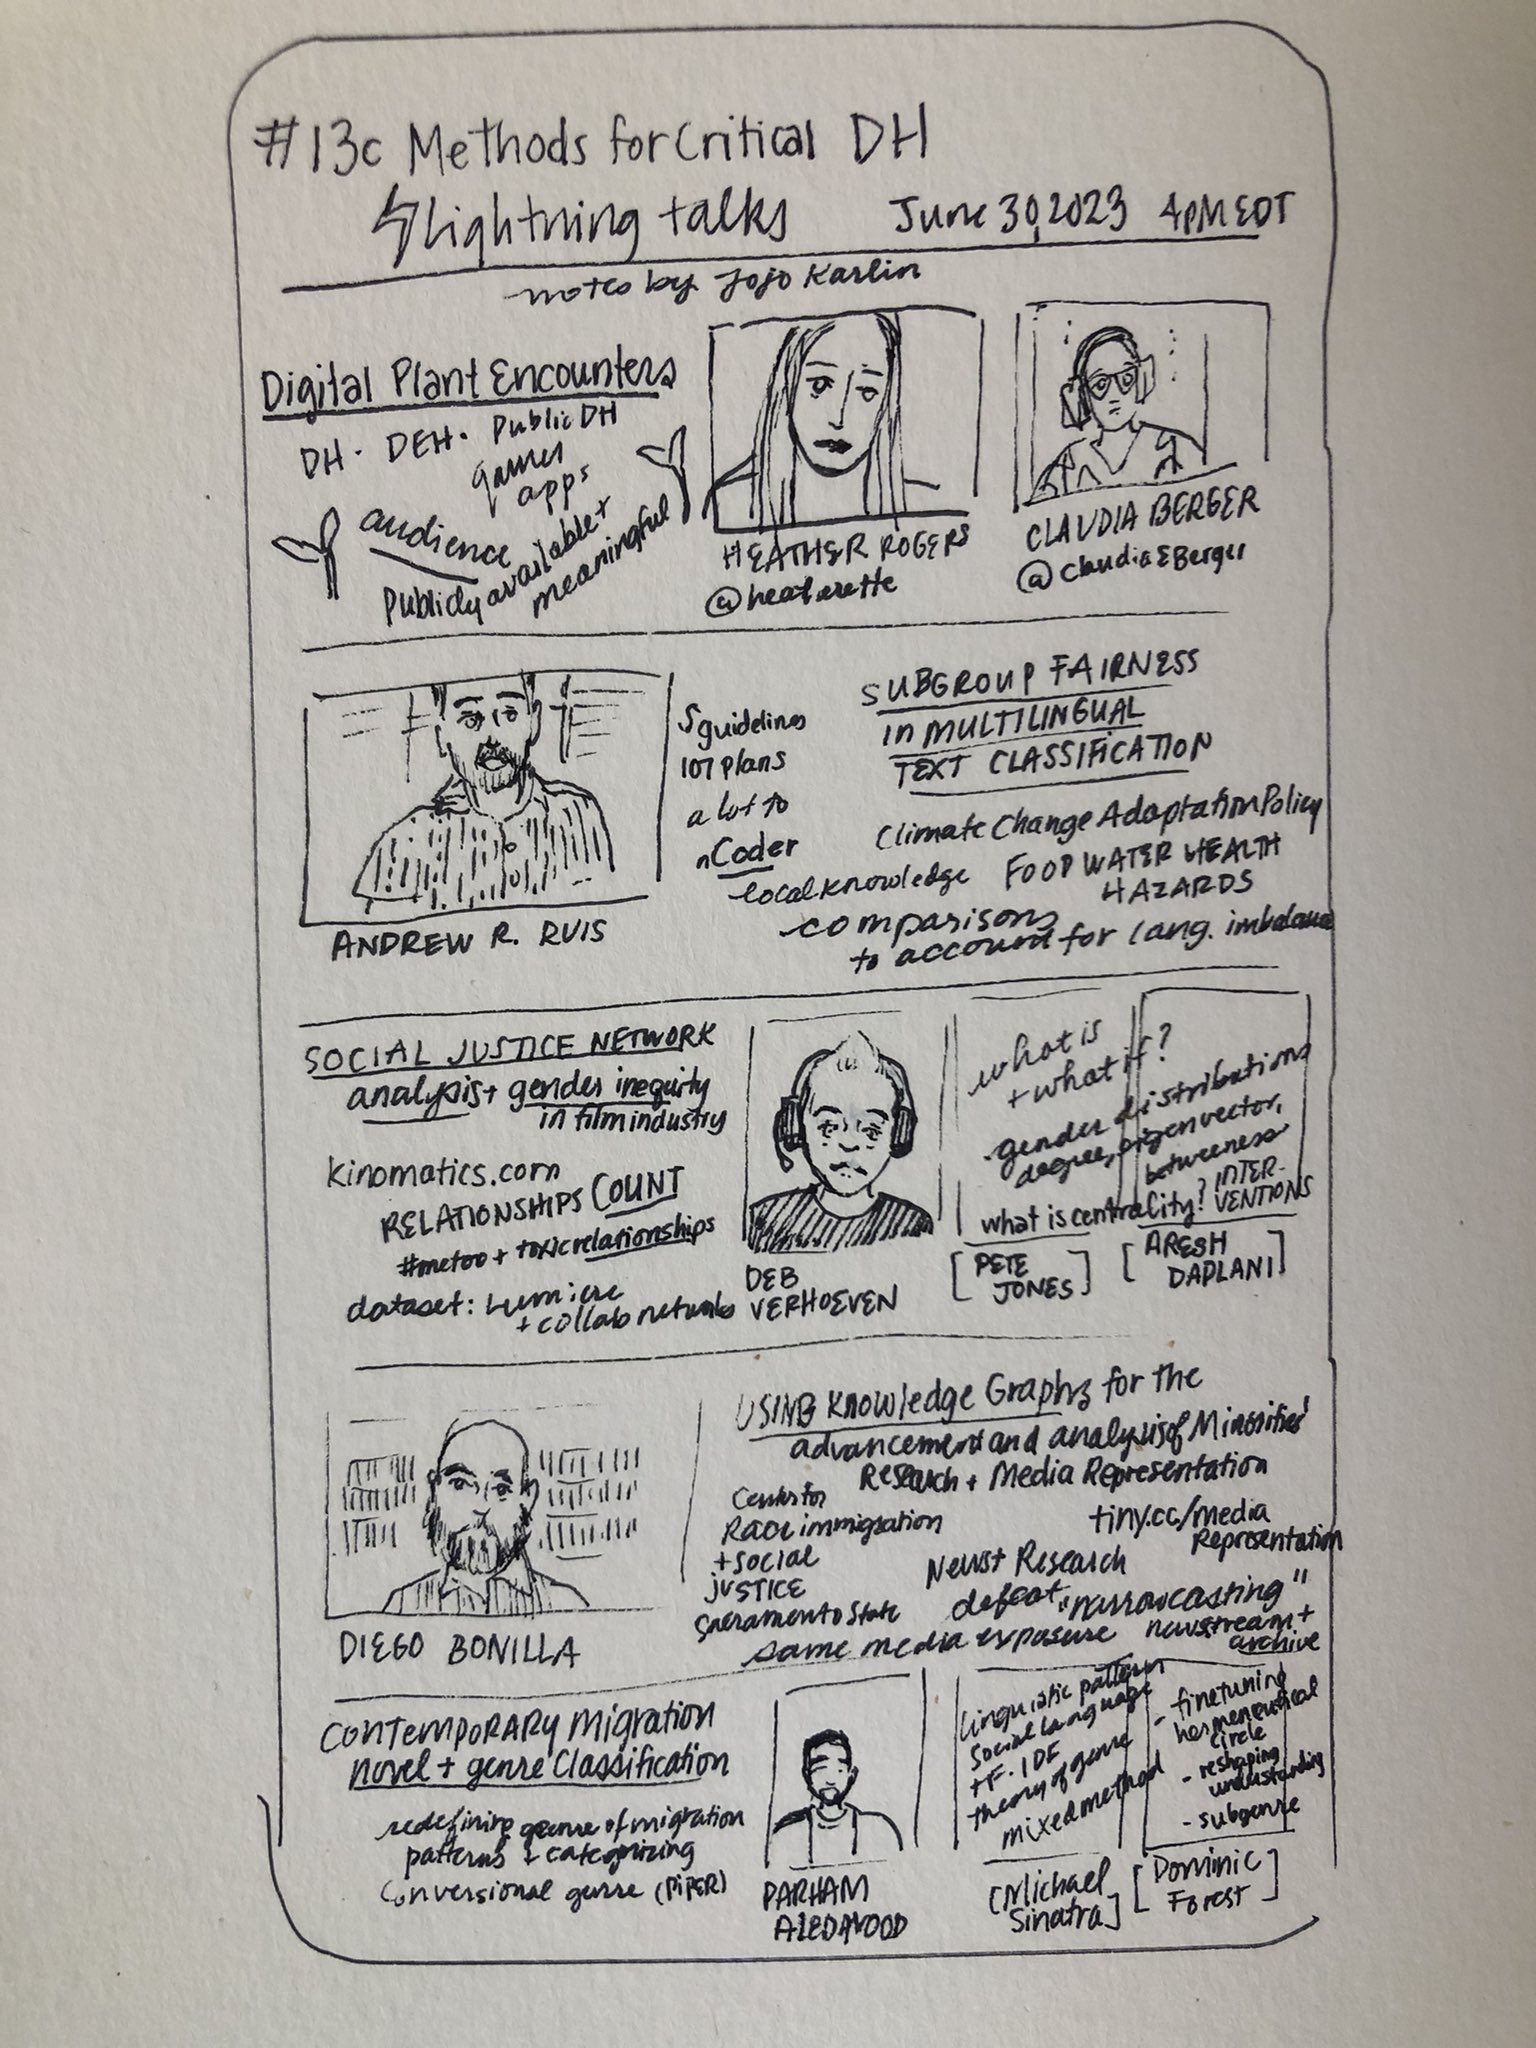 #13c Methods for Critical DH
Lightning talks June 30, 2023 4PM EDT
notes by Jojo Karlin
Digital Plant Encounters
DH · DEH · Public DH
games
apps
audience
Publicly available +
meaningful
HEATHER ROGERS
CLAUDIA BERGER
@claudiaEBerger
SUBGROUP FAIRNESS
in MULTILINGUAL
TEXT CLASSIFICATION
5 guidelines
107 plans
a lot to
nCoder
Climate Change Adaptation Policy
local knowledge
FOOD WATER HEALTH
HAZARDS
comparisons
to account for lang. imbalance
ANDREW R. RUIS
SOCIAL JUSTICE NETWORK
analysis + gender inequity
in film industry
kinomatics.com
RELATIONSHIPS COUNT
#metoo + toxic relationships
dataset: Lumiere
+ collab networks
DEB
VERHOEVEN
what is
+ what if?
gender distributions
degree, eigenvector,
betweeness
what is centrality?
INTER-
VENTIONS
[PETE
JONES]
[ARESH
DAPLANI]
USING Knowledge Graphs for the
advancement and analysis of Minorities'
Research + Media Representation
Center for
Race immigration
+ social
JUSTICE
Sacramento State
tiny.cc/media
Representation
News + Research
defeat "narrowcasting"
same media exposure
newstream +
archive
DIEGO BONILLA
CONTEMPORARY Migration
novel + genre Classification
redefining genre of migration
patterns + categorizing
Conversional genre (PIPER)
PARHAM
ALEDAVOOD
linguistic pattern
social language
TF·IDF
theory of genre
mixed method
- finetuning
hermeneutical
circle
- reshaping
understanding
- subgenre
[Michael
Sinatra]
[Dominic
Forest]